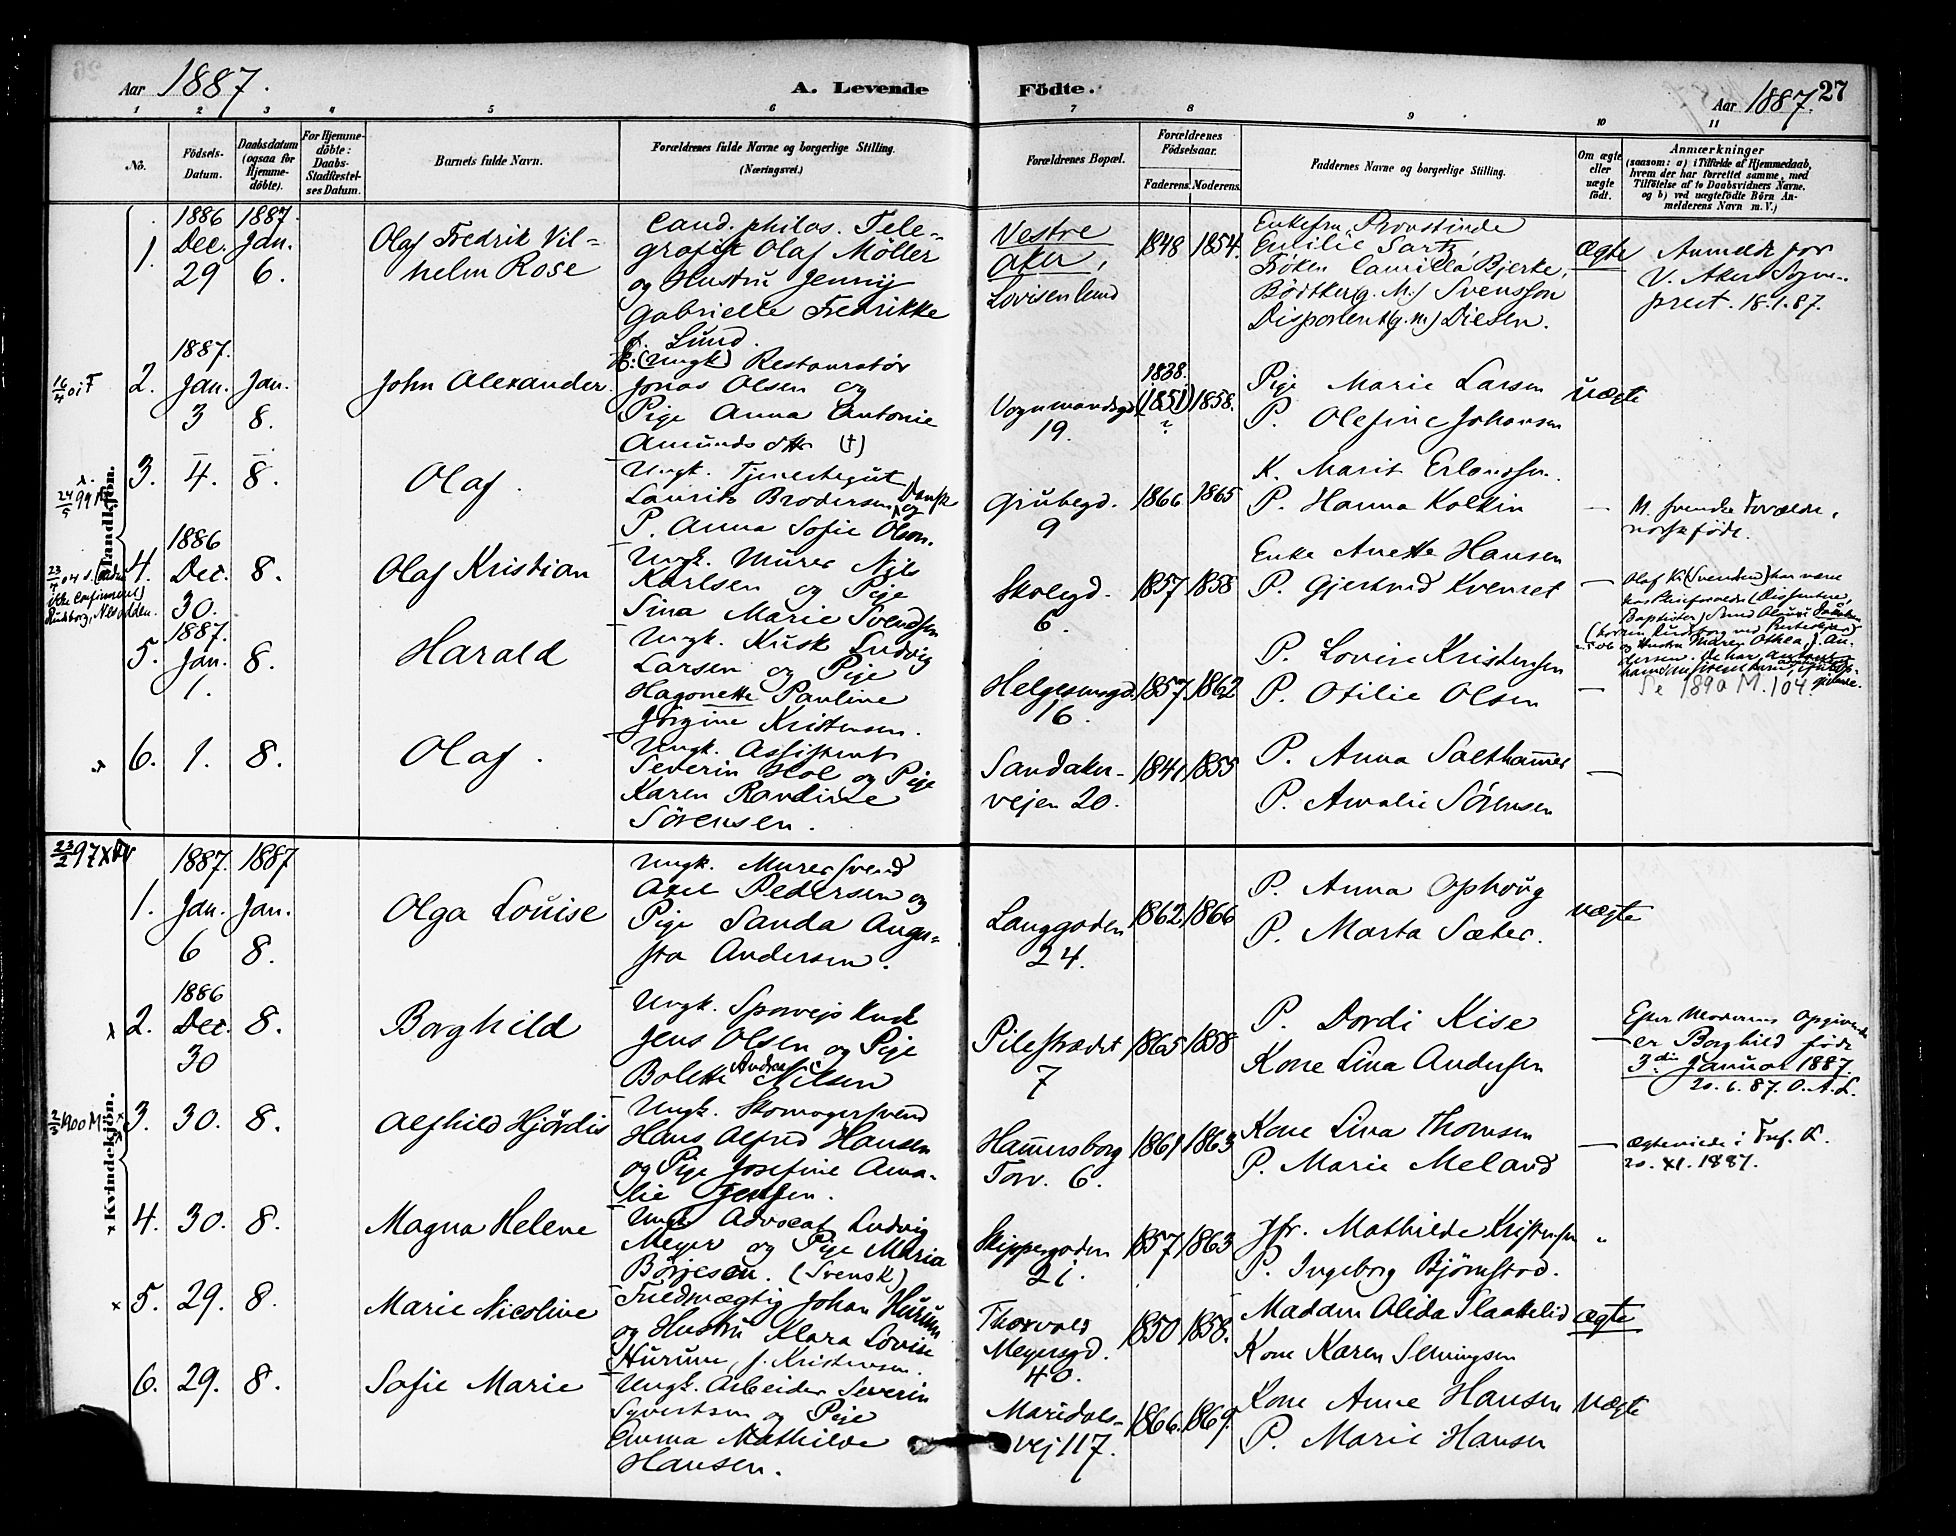 Aar 1887.
A. Levende Födte.
Aar 1887. 27
1 2 3 4 5 6 7 8 9 10 11
No.
Födsels-
Datum.
Daabsdatum
(ogsaa for
Hjemme-
döbte).
For Hjemme-
döbte:
Daabs-
Stadfæstel-
ses Datum.
Barnets fulde Navn.
Forældrenes fulde Navne og borgerlige Stilling.
(Næringsvei.)
Forældrenes Bopæl.
Forældrenes
Födselsaar.
Faderens. Moderens.
Faddernes Navne og borgerlige Stilling.
Om ægte
eller
uægte
födt.
Anmærkninger
(saasom: a) i Tilfælde af Hjemmedaab,
hvem der har forrettet samme, med
Tilföielse af to Daabsvidners Navne.
og b) ved uægtefödte Börn An-
melderens Navn m. V.)
Mandkjön.
1.
1886
Dec.
29
1887.
Jan.
6.
Olaf Fredrik Vil-
helm Rose
Cand. philos. Tele-
grafist Olaf Möller
og Hustru Jenny
Gabrielle Fredrikke
f. Lund.
Vestre
Aker,
Lovisenlund
1848 1854.
Enkefru Provstinde
Emilie Sartz,
Fröken Camilla Bjerke,
Bödtker (g. M.) Svensson
Disponent (g. M.) Diesen.
ægte
Anmeldt for
V. Aker Sogne-
prest. 18.1.87.
16/4 01 F
2.
1887.
Jan.
3
Jan.
8.
John Alexander.
(Ungk) Restauratör
Jonas Olsen og
Pige Anna Antonie
Amundsdtr (†)
Vognmandsgd.
19.
1838.
(1851)
?
1858.
Pige Marie Larsen
P. Olefine Johansen
uægte
24/5 99
3. 4. 8.
Olaf.
Ungk. Tjenestegut
Laurits Brodersen Dansk og
P. Anna Sofie Olson.
Grubegd.
9
1866 1865
K. Marit Erlandsen.
P. Hanna Kolkin
—
M. svenske Forældre,
norsk født.
23/4 04
4.
1886
Dec.
30.
8.
Olaf Kristian
Ungk. Murer Nils
Karlsen og Pige
Sina Marie Svendsen
Skolegd.
6.
1857 1858
Enke Anette Hansen
P. Gjertrud Kvernet
—
5.
1887.
Jan.
1.
8.
Harald
Ungk. Kusk Ludvig
Larsen og Pige
Hagonette Pauline
Jörgine Kristensen.
Helgesensgd.
16.
1857. 1862
P. Lovise Kristensen
P. Otilie Olsen
—
Se 1890 M. 104.
6. 1. 8.
Olaf.
Ungk. Assistent
Severin Hol og Pige
Karen Randine
Sörensen.
Sandaker-
vejen 20.
1841 1855
P. Anna Salthammer
P. Amalie Sörensen
—
Kvindekjön.
23/2 97
1.
1887.
Jan.
6
1887
Jan.
8.
Olga Louise
Ungk. Murersvend
Axel Pedersen og
Pige Sanda Augu-
sta Andersen.
Langgaden
24.
1862 1866
P. Anna Ophoug
P. Marta Sæter.
uægte
2.
1886
Dec.
30
8.
Borghild
Ungk. Sporvejskusk
Jens Olsen og Pige
Bolette Andrea Nilsen
Pilestrædet
7
1865 1858
P. Dordi Kise
Kone Lina Andersen
—
Efter Moderens Opgivende
er Borghild født
3die Januar 1887.
20.6.87. O.A.L.
2/3 1900 M
3. 30. 8.
Alfhild Hjördis
Ungk. Skomagersvend
Hans Alfred Hansen
og Pige Josefine Ama-
lie Jensen.
Hammersborg
Torv. 6.
1861 1863
Kone Lina Thomsen
P. Marie Meland
—
Ægteviede i Tref. K.
20. XI. 1887.
4. 30. 8.
Magna Helene
Ungk. Advocat Ludvig
Meyer og Pige Maria
Börjeson. (Svensk)
Skippergaden
21.
1857 1863
Jfr. Mathilde Kristensen
P. Ingeborg Björnstad.
"
5. 29. 8.
Marie Nicoline
Fuldmægtig Johan Hurum
og Hustru Klara Lovise
Hurum, f. Kristensen.
Thorvald
Meyersgd.
40.
1850 1858.
Madam Alida Slaattelid
Kone Karen Semingsen
ægte
6. 29. 8.
Sofie Marie
Ungk. Arbeider Severin
Syvertsen og Pige
Emma Mathilde
Hansen.
Maridals-
vej 117.
1866. 1869.
Kone Anne Hansen
P. Marie Hansen
uægte